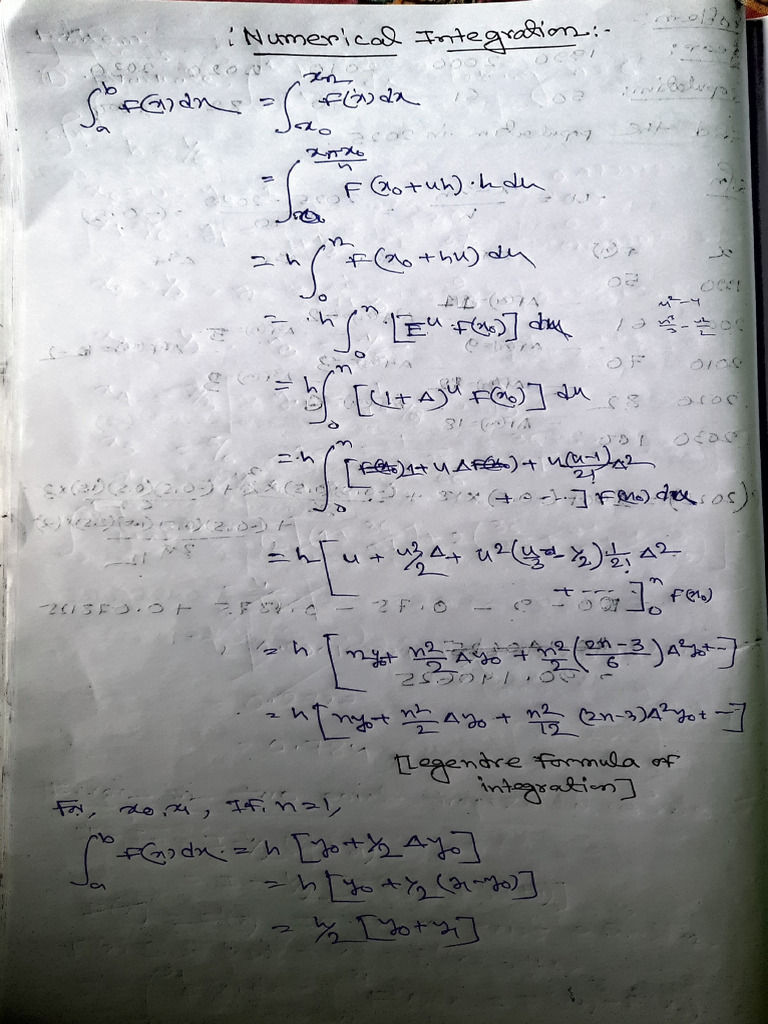 : Numerical Integration :-
∫_a^b F(x) dx = ∫_{x0}^{xn} F(x) dx
= ∫_0^{(xn-x0)/h} F(x0+uh)·h du
= h ∫_0^n F(x0+hu) du
= h ∫_0^n [E^u F(x0)] du
u² - u
u³/3 - u²/2
= h ∫_0^n [(1+Δ)^u F(x0)] du
= h ∫_0^n [1 + uΔ + u(u-1)/2! Δ²
+ --- ] F(x0) du
= h [u + u²/2 Δ + u²(u/3 - 1/2) 1/2! Δ²
+ --- ]_0^n F(x0)
= h [ny0 + n²/2 Δy0 + n²/2 ((2n-3)/6) Δ²y0 + --]
= h [ny0 + n²/2 Δy0 + n²/12 (2n-3)Δ²y0 + --]
[Legendre formula of
integration]
For, x0, x1, If n=1,
∫_a^b F(x) dx = h [y0 + 1/2 Δy0]
= h [y0 + 1/2 (y1-y0)]
= h/2 [y0+y1]